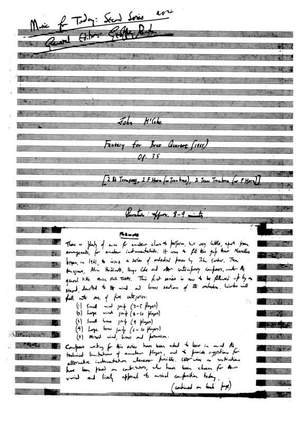 Music for Today: Second Series
General Editor: Geoffrey
John McCabe
Fantasy for Brass Quartet (1965)
Op. 35
[2 Bb Trumpets, F Horn (or Trombone), Tenor Trombone (or F Horn)]
Duration: approx. minutes
There is plenty of music for amateur choirs to perform, but very little, apart from
arrangements, for amateur instrumentalists. It was to fill this gap that Novellos
began, in 196, to issue a series of orchestral pieces by John Joubert, Thea
Musgrave, Alun Hoddinott, Hugo Cole and other contemporary composers, under the
general title Music for Today. This first series is now to be followed up by a
second, devoted to the wind and brass sections of the orchestra. Works will
fall into one of five categories:
(1) Small wind group (players)
(2) Large wind group (players)
(3) Small brass group (players)
(4) Large brass group (players)
(5) Mixed wind, brass and percussion.
Composers writing for this series have been asked to bear in mind the
technical limitations of amateur players, and to provide suggestions for
alternative instrumentation wherever possible. no restrictions
have been placed on composers, who have been chosen for their
varied and lively approach to musical composition today.
(continued on back page)